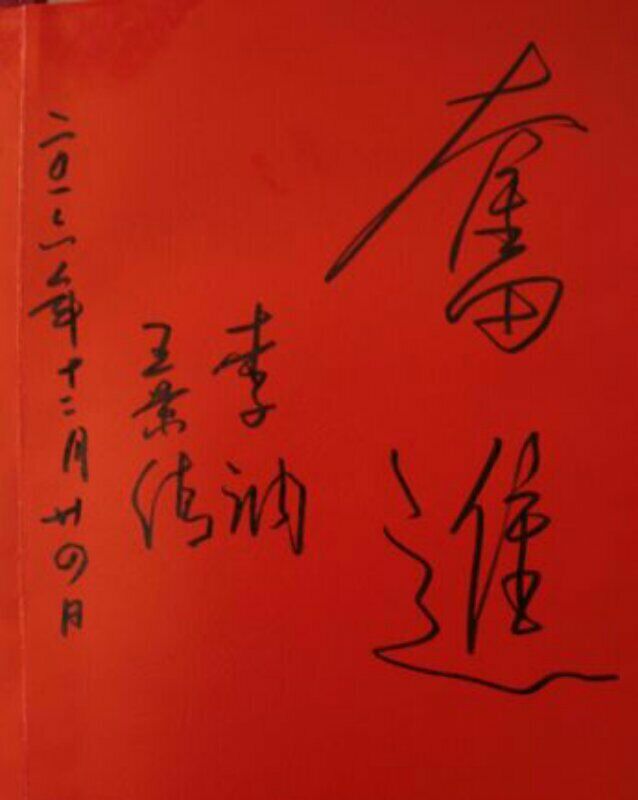 奮進
李訥
王景清
二〇一六年十二月廿四日